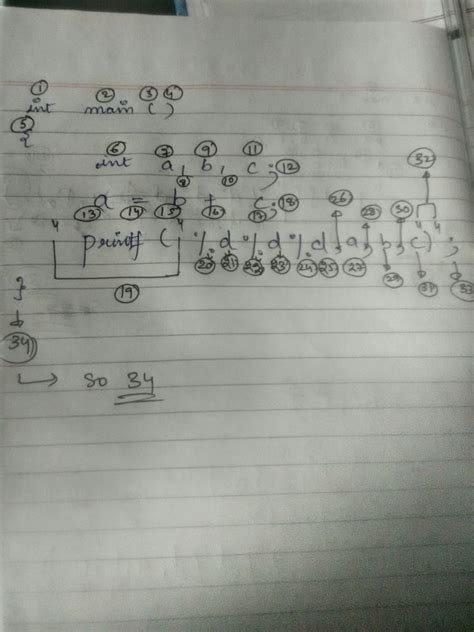 ① ② ③ ④
int main ( )
⑤
{
⑥ ⑦ ⑨ ⑪
int a, b, c; ⑫
⑧ ⑩
a = b + c; ⑱
⑬ ⑭ ⑮ ⑯ ⑰ ㉖ ㉘ ㉚ ㉜
" printf ( " % d % d % d, a, b, c) " " ;
⑳ ㉑ ㉒ ㉓ ㉔ ㉕ ㉗ ㉙ ㉛ ㉝
⑲
}
㉞
so 34